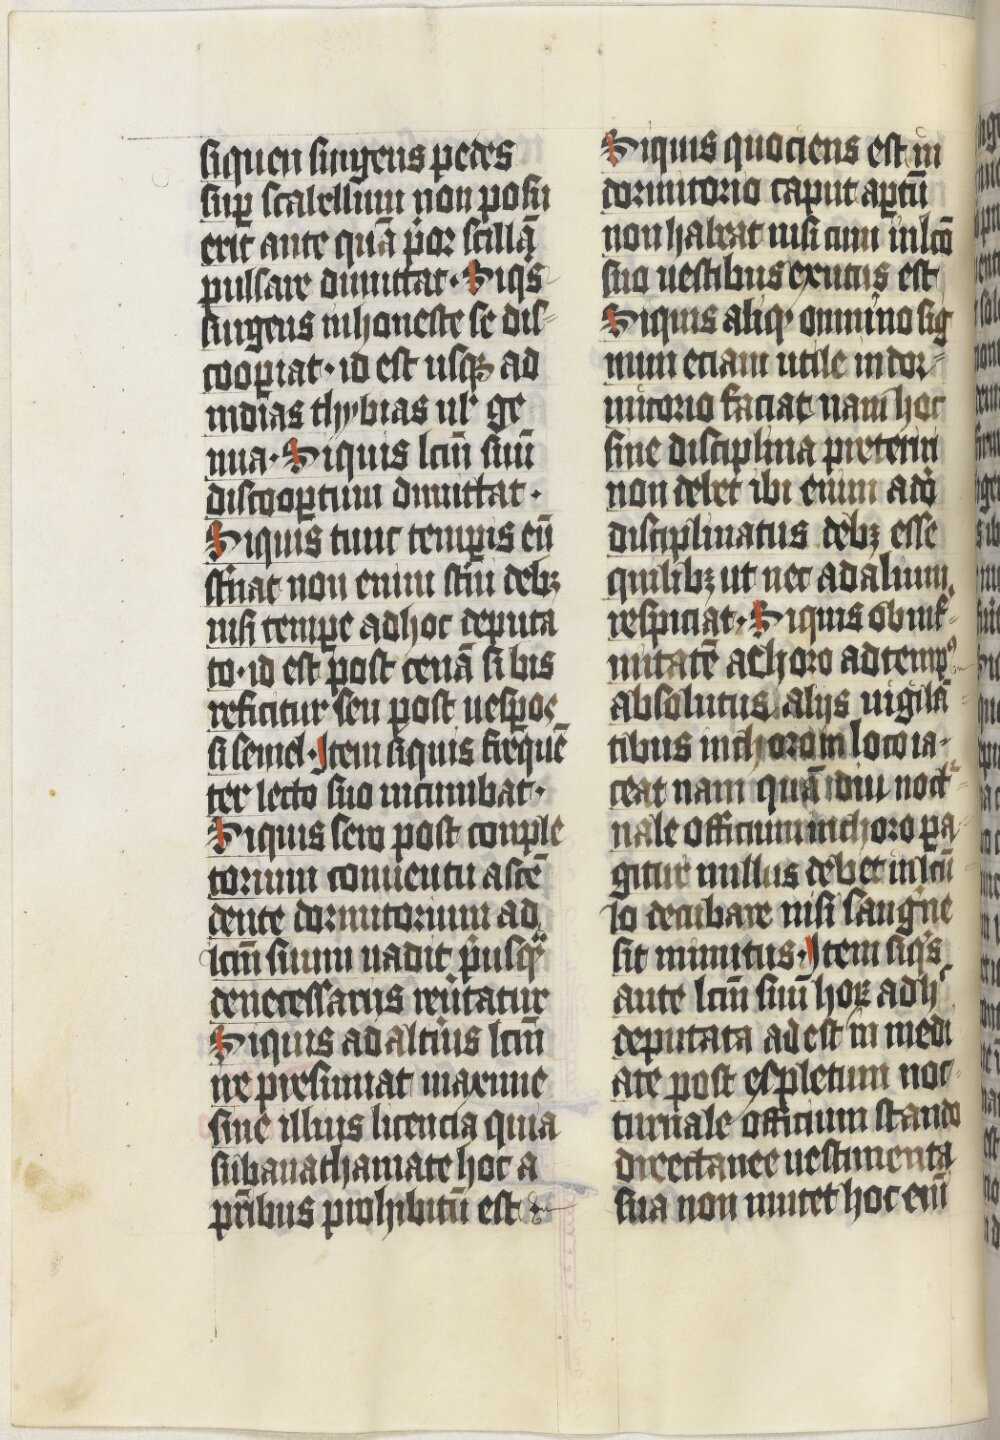 siquen surgens pedes
sup scalellum non posu
erit ante quā p̄or scillā
pulsare dimittat. Siqs
surgens inhoneste se dis⸗
coopiat. id est usqꝫ ad
mdias thybias ul' ge
nua. Siquis lcm̄ suū
discooptum dimittat.
Siquis tunc tempis eū
st̄nat non enim st̄ni debꝫ
nisi tempe adhoc deputa
to. id est post cenā si bis
reficitur seu post uesꝑos
si semel. Item siquis freque̅
ter lecto suo incumbat.
Siquis sero post comple
torium conuentu ascē
dente dormitorium ad
lcm̄ suum uadit p̄usq̄
denecessariis reūtatur
Siquis ad alterius lcm̄
ire presumat maxime
sine illius licencia quia
subanathamate hoc a
pr̄ibus prohibitū est
Siquis quociens est in
dormitorio caput aptū
non habeat nisi cum in lcō
suo uestibus exutus est
Siquis aliqꝫ omnino sig
num eciam utile in dor⸗
mitorio faciat nam hoc
sine disciplina preterm
non debet ibi enim adō
disciplinatus debꝫ esse
quilibꝫ ut nec ad alium
respiciat. Siquis ob inf⸗
mitatē a choro ad temp⁹
absolutus aliis uigilā
tibus in choro in loco ia⸗
ceat nam quā diu noct⸗
nale officium in choro pa
gitur nullus debet in lcū
lo decubare nisi sangne
sit minutus. Item siqs
ante lcm̄ suū hoꝝ adh'
deputata adest in medi
ate post expletum noc⸗
turnale officium stando
directanee uestimenta
sua non mutet hoc enī